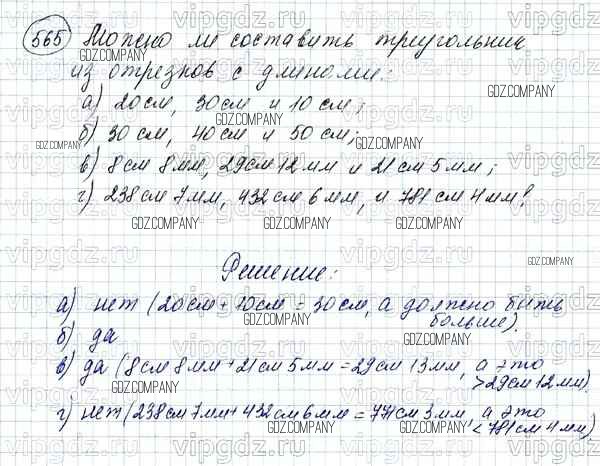 565 Можно ли составить треугольник
из отрезков с длинами:
а) 20см, 30см и 10см;
б) 30см, 40см и 50см;
в) 8см 8мм, 29см 12мм и 21см 5мм;
г) 238см 7мм, 432см 6мм, и 781см 4мм?
Решение:
а) нет (20см + 10см = 30см, а должно быть
больше).
б) да
в) да (8см 8мм + 21см 5мм = 29см 13мм, а это
> 29см 12мм).
г) нет (238см 7мм + 432см 6мм = 771см 3мм, а это
< 781см 4мм).
vipgdz.ru
GDZ.COMPANY